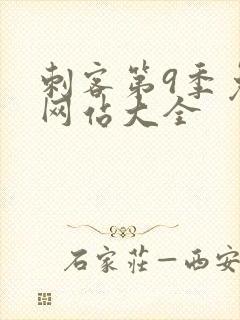 刺客第9季免
网佔大全
石家莊－西安